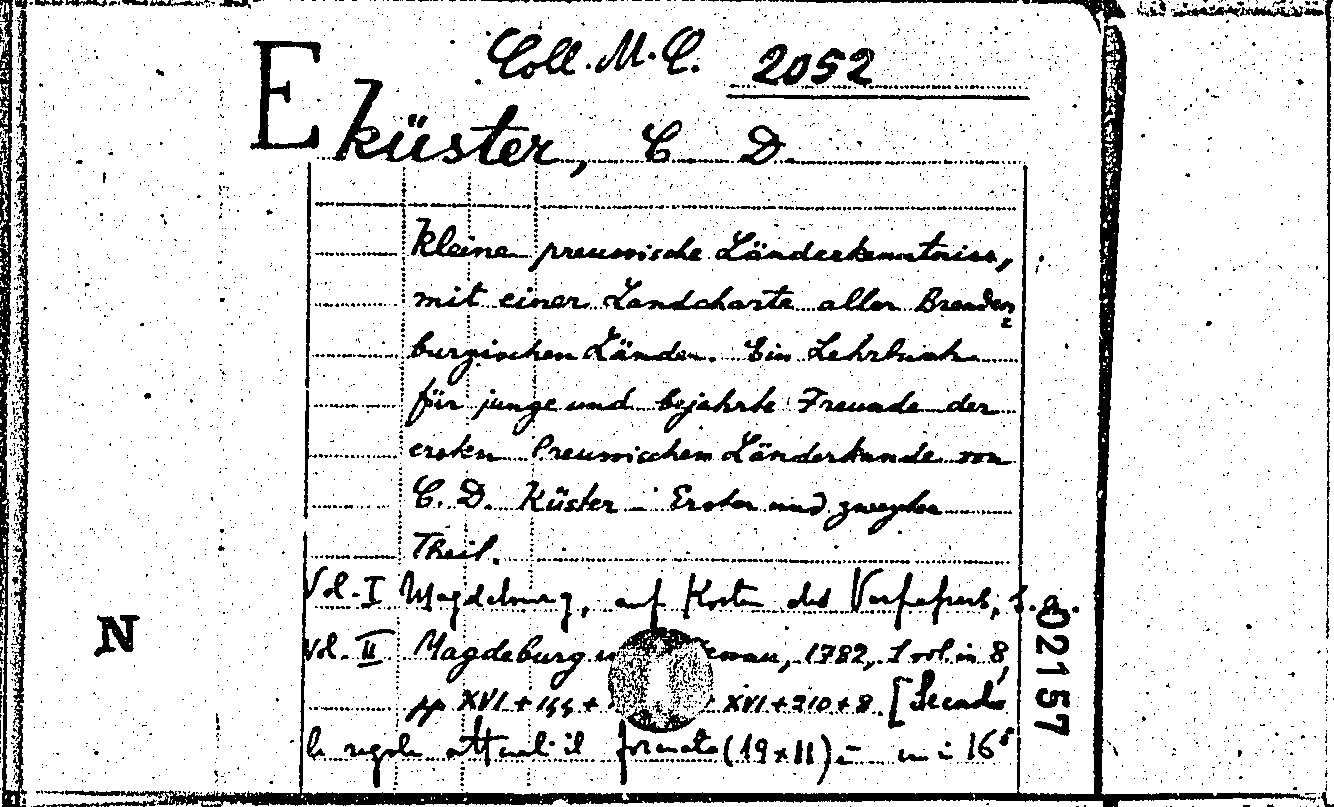 E
Coll. M. C. 2052
Küster, C. D.
Kleine preussische Länderkenntniss,
mit einer Landcharte aller Branden=
burgischen Länder. Ein Lehrbuch
für junge und bejahrte Freunde der
ersten Preussischen Länderkunde von
C. D. Küster - Erster und zweyter
Theil.
Vol. I Magdeburg, auf Kosten des Verfassers, s. a.
Vol. II Magdeburg 1782, 1 vol. in 8,
pp XVI + 144 + XVI + 210 + 8. [Secondo
le regole attuali il formato (19 x 11) è in 16°
N
02157